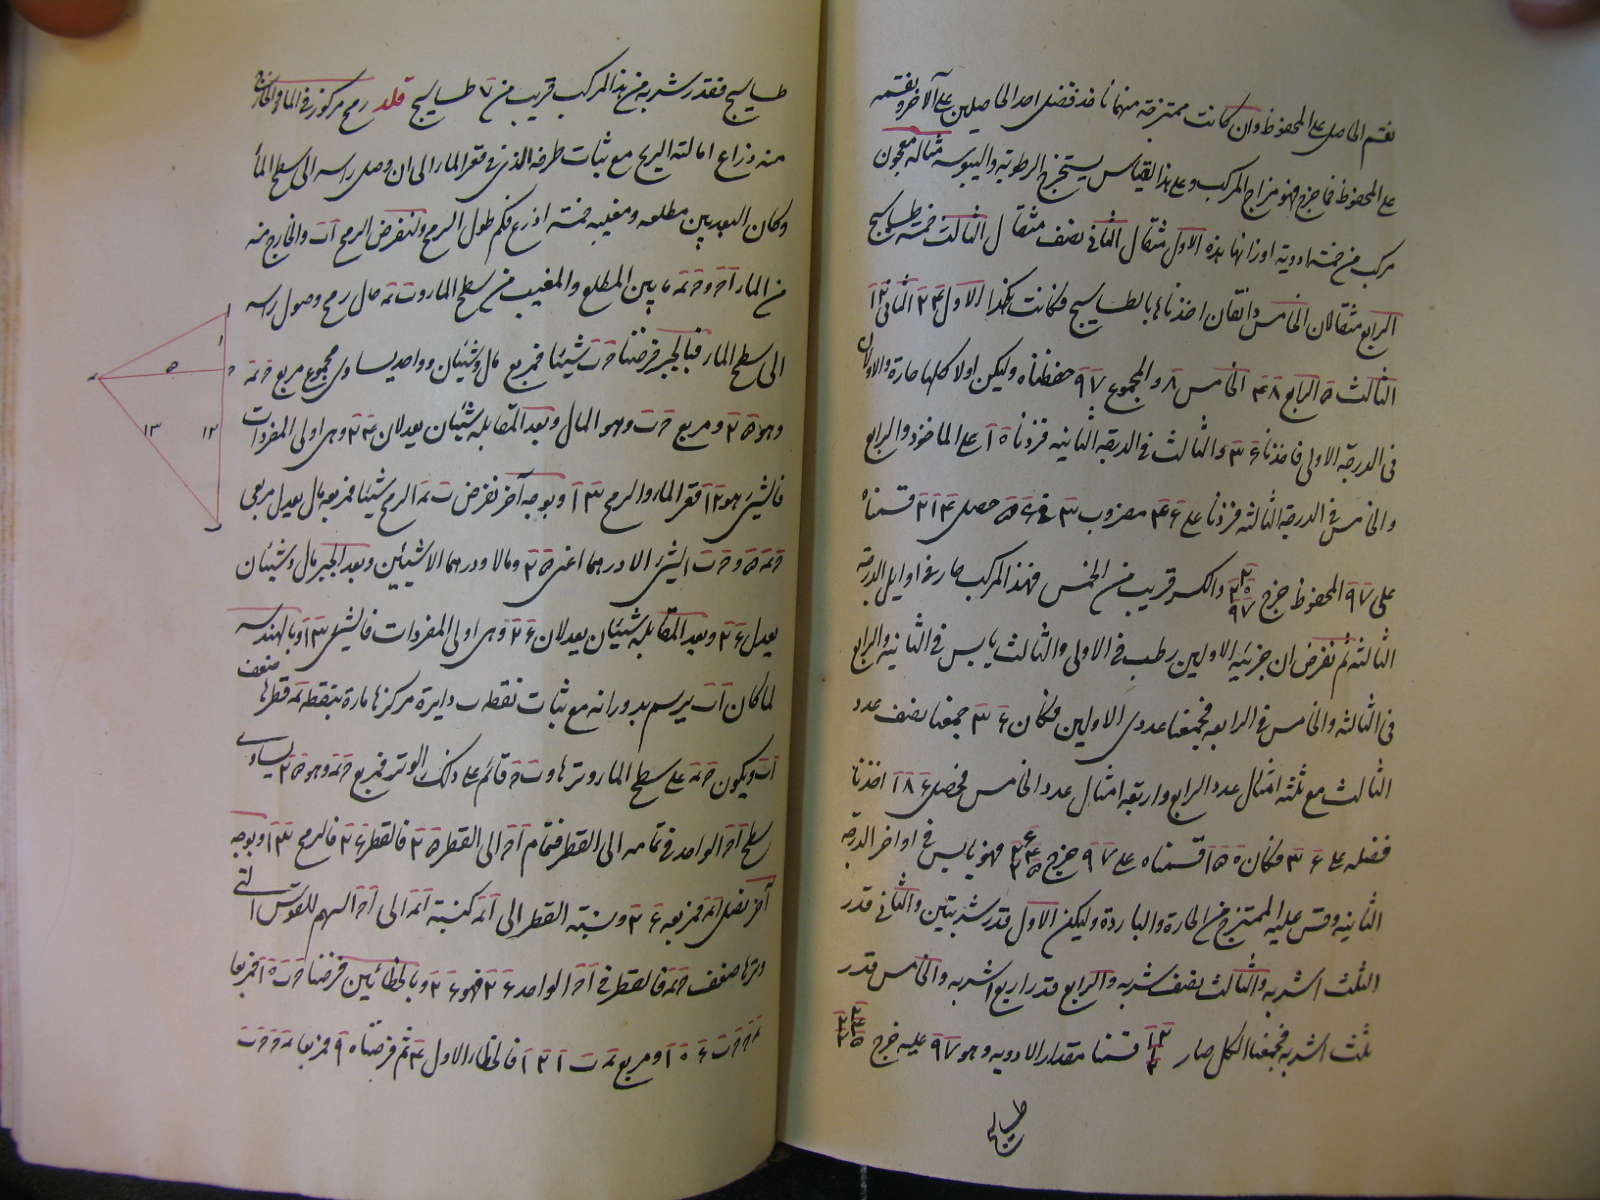 نقسم الحاصل على المحفوظ وان كانت ممتزجة منهما ناخذ فضل احد الحاصلين على الآخر ونقسمه
على المحفوظ فما خرج فهو مزاج المركب وعلى هذا القياس يستخرج الرطوبة واليبوسة مثاله معجون
مركب من خمسة ادوية اوزانها هذه الاول مثقال الثانى نصف مثقال الثالث خمسة طساسيج
الرابع مثقالان الخامس دانقان اخذناها بالطساسيج فكانت هكذا الاول ٢٤ الثانى ١٢
الثالث ٥ الرابع ٤٨ الخامس ٨ والمجموع ٩٧ حفظناه وليكن اولا كلها حارة والاولان
فى الدرجة الاولى فاخذنا ٣٦ والثالث فى الدرجة الثانية فزدنا ١٠ على الماخوذ والرابع
والخامس فى الدرجة الثالثة فزدنا على ٤٦ مضروب ٣ فى ٥٦ حصل ٢١٤ قسمناه
على ٩٧ المحفوظ خرج ٢ ٢٠ ٩٧ والكسر قريب من الخمس فهذا المركب حار فى اوايل الدرجة
الثالثة ثم نفرض ان جزئيه الاولين رطب فى الاولى والثالث يابس فى الثانية والرابع
فى الثالثة والخامس فى الرابعة فجمعنا عددى الاولين فكان ٣٦ جمعنا ضعف عدد
الثالث مع ثلثة امثال عدد الرابع واربعة امثال عدد الخامس فحصل ١٨٦ اخذنا
فضله على ٣٦ فكان ١٥٠ قسمناه على ٩٧ خرج فهو يابس فى اواخر الدرجة
الثانية وقس عليه الممتزج من الحارة والباردة وليكن الاول قدر شربتين والثانى قدر
الثلث اشربه والثالث نصف شربه والرابع قدر اربع اشربه والخامس قدر
ثلث اشربه فجمعنا الكل صار قسمنا مقدار الادويه وهو ٩٧ عليه خرج
طساسيج
طساسيج فقدر شربة من هذا المركب قريب من ٧ طساسيج رمح مركوز فى الماء والخارج
منه ذراع امالته الريح مع ثبات طرفه الذى فى قعر الماء الى ان وصل راسه الى سطح الماء
وكان البعد بين مطلعه ومغيبه خمسة اذرع فكم طول الرمح ولنفرض الرمح اب والخارج منه
من الماء اح و حه ما بين المطلع والمغيب من سطح الماء و به حال رمح وصول راسه
الى سطح الماء فبالجبر فرضنا حب شيئا فمربع مال وشيئان وواحد يساوى مجموع مربع حه
وهو ٢٥ ومربع حب وهو المال وبعد المقابلة شيئان يعدلان ٢٤ وهى اولى المفردات
فالشئ هو ١٢ قعر الماء والرمح ١٣ وبوجه آخر نفرض به الرمح شيئا فمربعه مال يعدل مربعى
حه ٥ و حب الشئ الا درهما اعنى ٢٥ ومالا ودرهما الا شيئين وبعد الجبر مال وشيئان
يعدل ٢٦ وبعد المقابلة شيئان يعدلان ٢٦ وهى اولى المفردات فالشئ ١٣ وبالهندسه
لما كان اب يرسم بدورانه مع ثبات نقطه ب دايرة مركزها مارة بنقطه ه قطرها ضعف
اب ويكون حه على سطح الماء وترها و بح قائم على ذلك الوتر فمربع حه وهو ٢٥ يساوى
سطح اح الواحد فى تمامه الى القطر فتمام اح الى القطر ٢٥ فالقطر ٢٦ فالرمح ١٣ وبوجه
آخر نصل اه فمربعه ٢٦ ونسبة القطر الى اه كنسبة اه الى اح السهم للقوس التى
وترها ضعف حه فالقطر فى اح الواحد ٢٦ فهو ٢٦ وبالخطائين فرضنا حب ١٥ فمربعا
فالخطاء الاول ٤ ثم فرضناه ٩ فمربعا
١
١
ح
٥
ه
١٢
١٣
ب